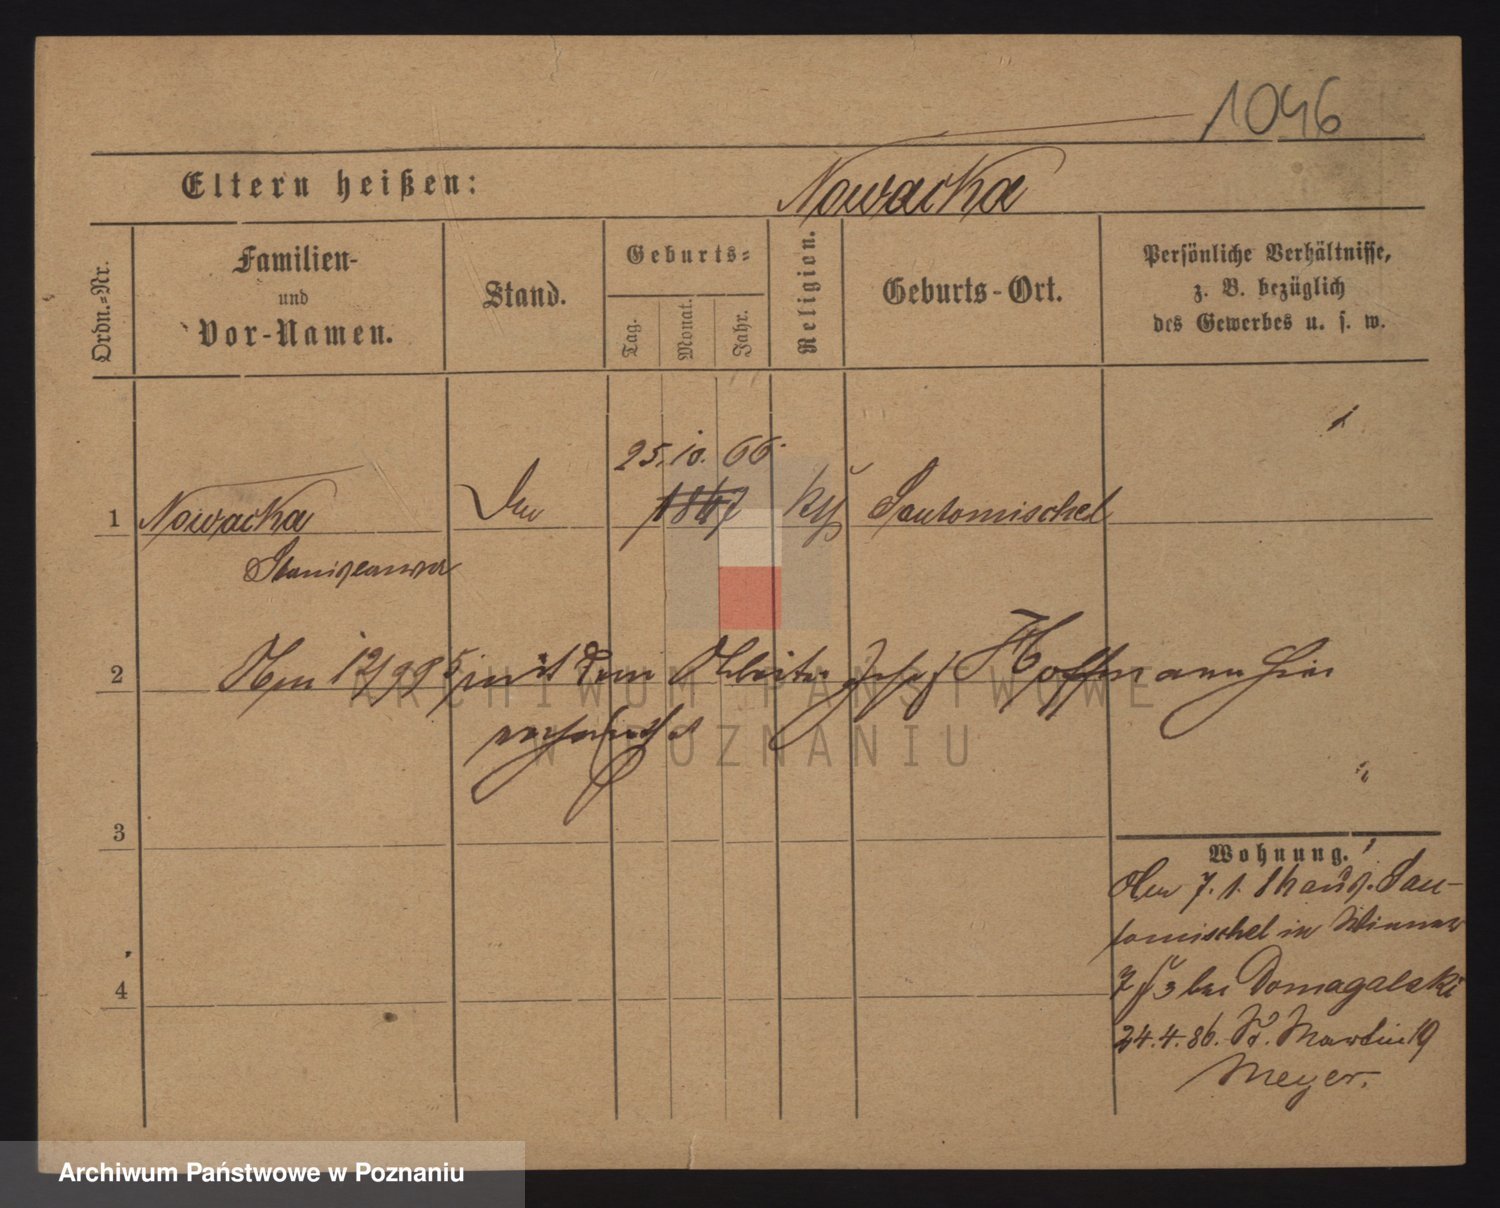 1046
Eltern heißen: Nowacka
Ordn.-Nr.
Familien-
und
Vor-Namen.
Stand.
Geburts-
Tag.
Monat.
Jahr.
Religion.
Geburts-Ort.
Persönliche Verhältnisse,
z. B. bezüglich
des Gewerbes u. s. w.
25. 10. 66.
1 Nowacka 1847 Santomischel
Stanislawa
2 Am mit dem Arbeiter Josef Hoffmann hier
verheirathet
3
Wohnung.
Am 7. 1. 86 aus San-
tomischel in
4
7 bei Domagalski
24. 4. 86. St. Martin 19
Meyer.
ARCHIWUM PAŃSTWOWE
W POZNANIU
Archiwum Państwowe w Poznaniu